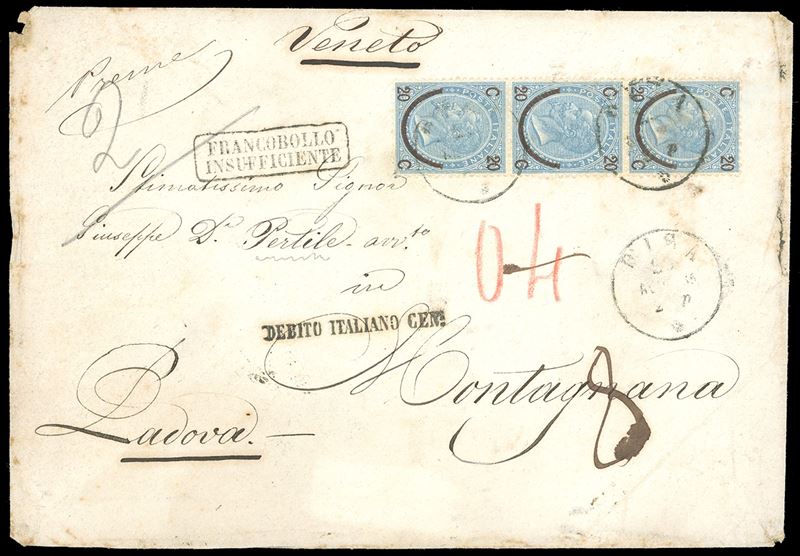 Veneto
Preme
2
FRANCOBOLLO
INSUFFICIENTE
C 20 POSTE ITALIANE 20 C
C 20 POSTE ITALIANE 20 C
C 20 POSTE ITALIANE 20 C
Stimatissimo Signor
Giuseppe Dr. Pertile avv.to
04
PISA
in
DEBITO ITALIANO CENi
Montagnana
8
Padova.